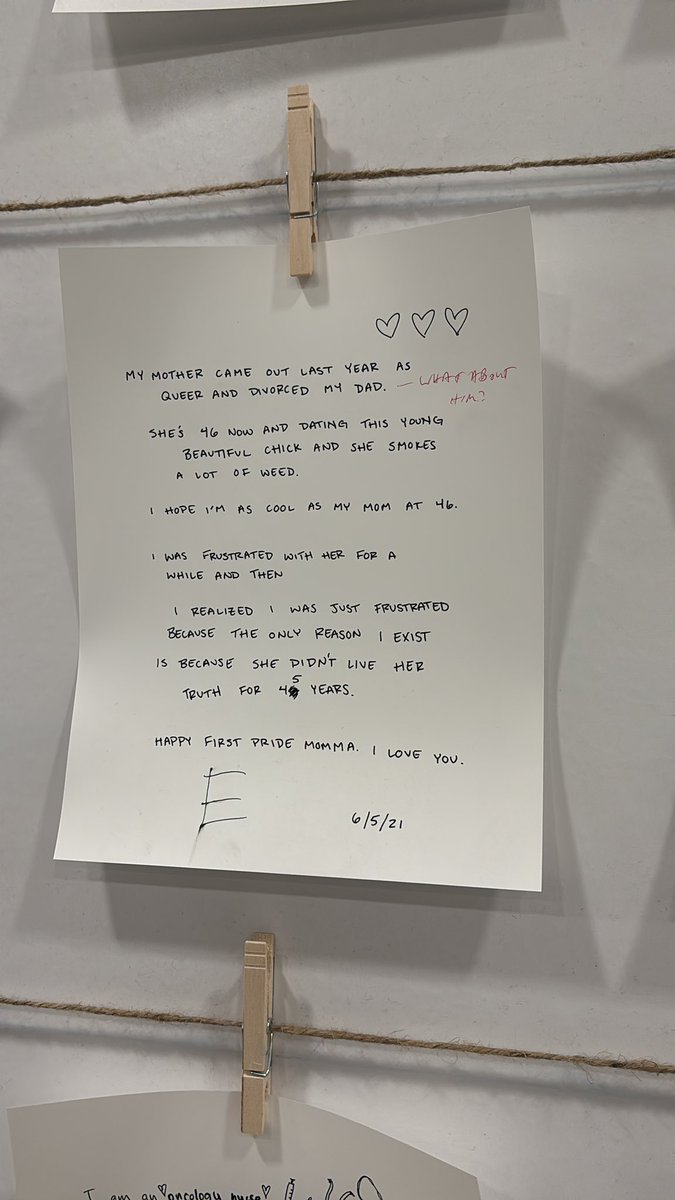 MY MOTHER CAME OUT LAST YEAR AS
QUEER AND DIVORCED MY DAD. — WHAT ABOUT
HIM?
SHE'S 46 NOW AND DATING THIS YOUNG
BEAUTIFUL CHICK AND SHE SMOKES
A LOT OF WEED.
I HOPE I'M AS COOL AS MY MOM AT 46.
I WAS FRUSTRATED WITH HER FOR A
WHILE AND THEN
I REALIZED I WAS JUST FRUSTRATED
BECAUSE THE ONLY REASON I EXIST
IS BECAUSE SHE DIDN'T LIVE HER
TRUTH FOR 45 YEARS.
HAPPY FIRST PRIDE MOMMA. I LOVE YOU.
E
6/5/21
I am an oncology nurse